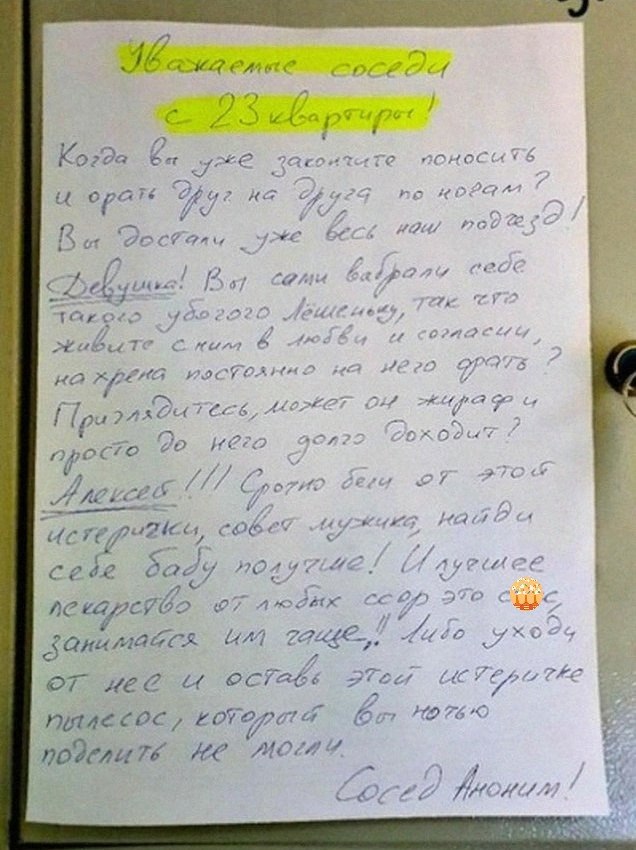 Уважаемые соседи
с 23 квартиры!
Когда вы уже закончите поносить
и орать друг на друга по ночам?
Вы достали уже весь наш подъезд!
Девушка! Вы сами выбрали себе
такого убогого Лёшеньку, так что
живите с ним в любви и согласии,
на хрена постоянно на него орать?
Приглядитесь, может он жираф и
просто до него долго доходит?
Алексей!!! Срочно беги от этой
истерички, совет мужика, найди
себе бабу получше! И лучшее
лекарство от любых ссор это с с,
занимайся им чаще!! Либо уходи
от нее и оставь этой истеричке
пылесос, который вы ночью
поделить не могли.
Сосед Аноним!